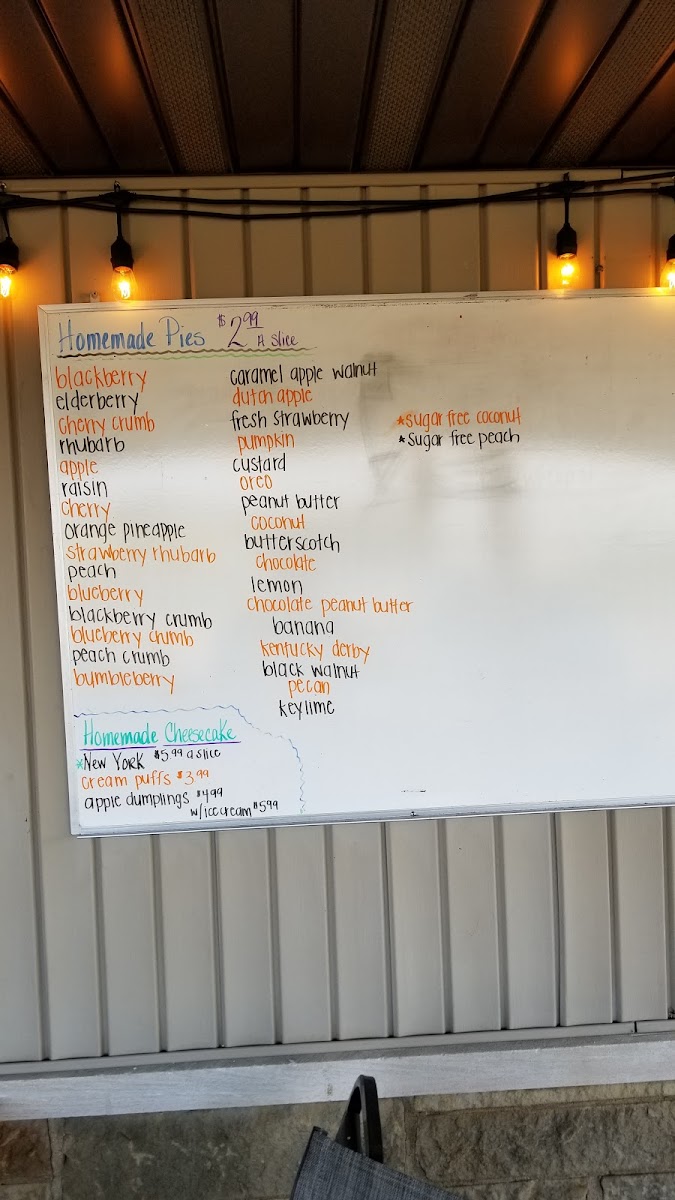 Homemade Pies $2.99 A slice
blackberry
elderberry
cherry crumb
rhubarb
apple
raisin
cherry
orange pineapple
strawberry rhubarb
peach
blueberry
blackberry crumb
blueberry crumb
peach crumb
bumbleberry
caramel apple walnut
dutch apple
fresh strawberry
pumpkin
custard
oreo
peanut butter
coconut
butterscotch
chocolate
lemon
chocolate peanut butter
banana
kentucky derby
black walnut
pecan
keylime
*sugar free coconut
*sugar free peach
Homemade Cheesecake
*New York $5.99 a slice
cream puffs $3.99
apple dumplings $4.99
w/ice cream $5.99